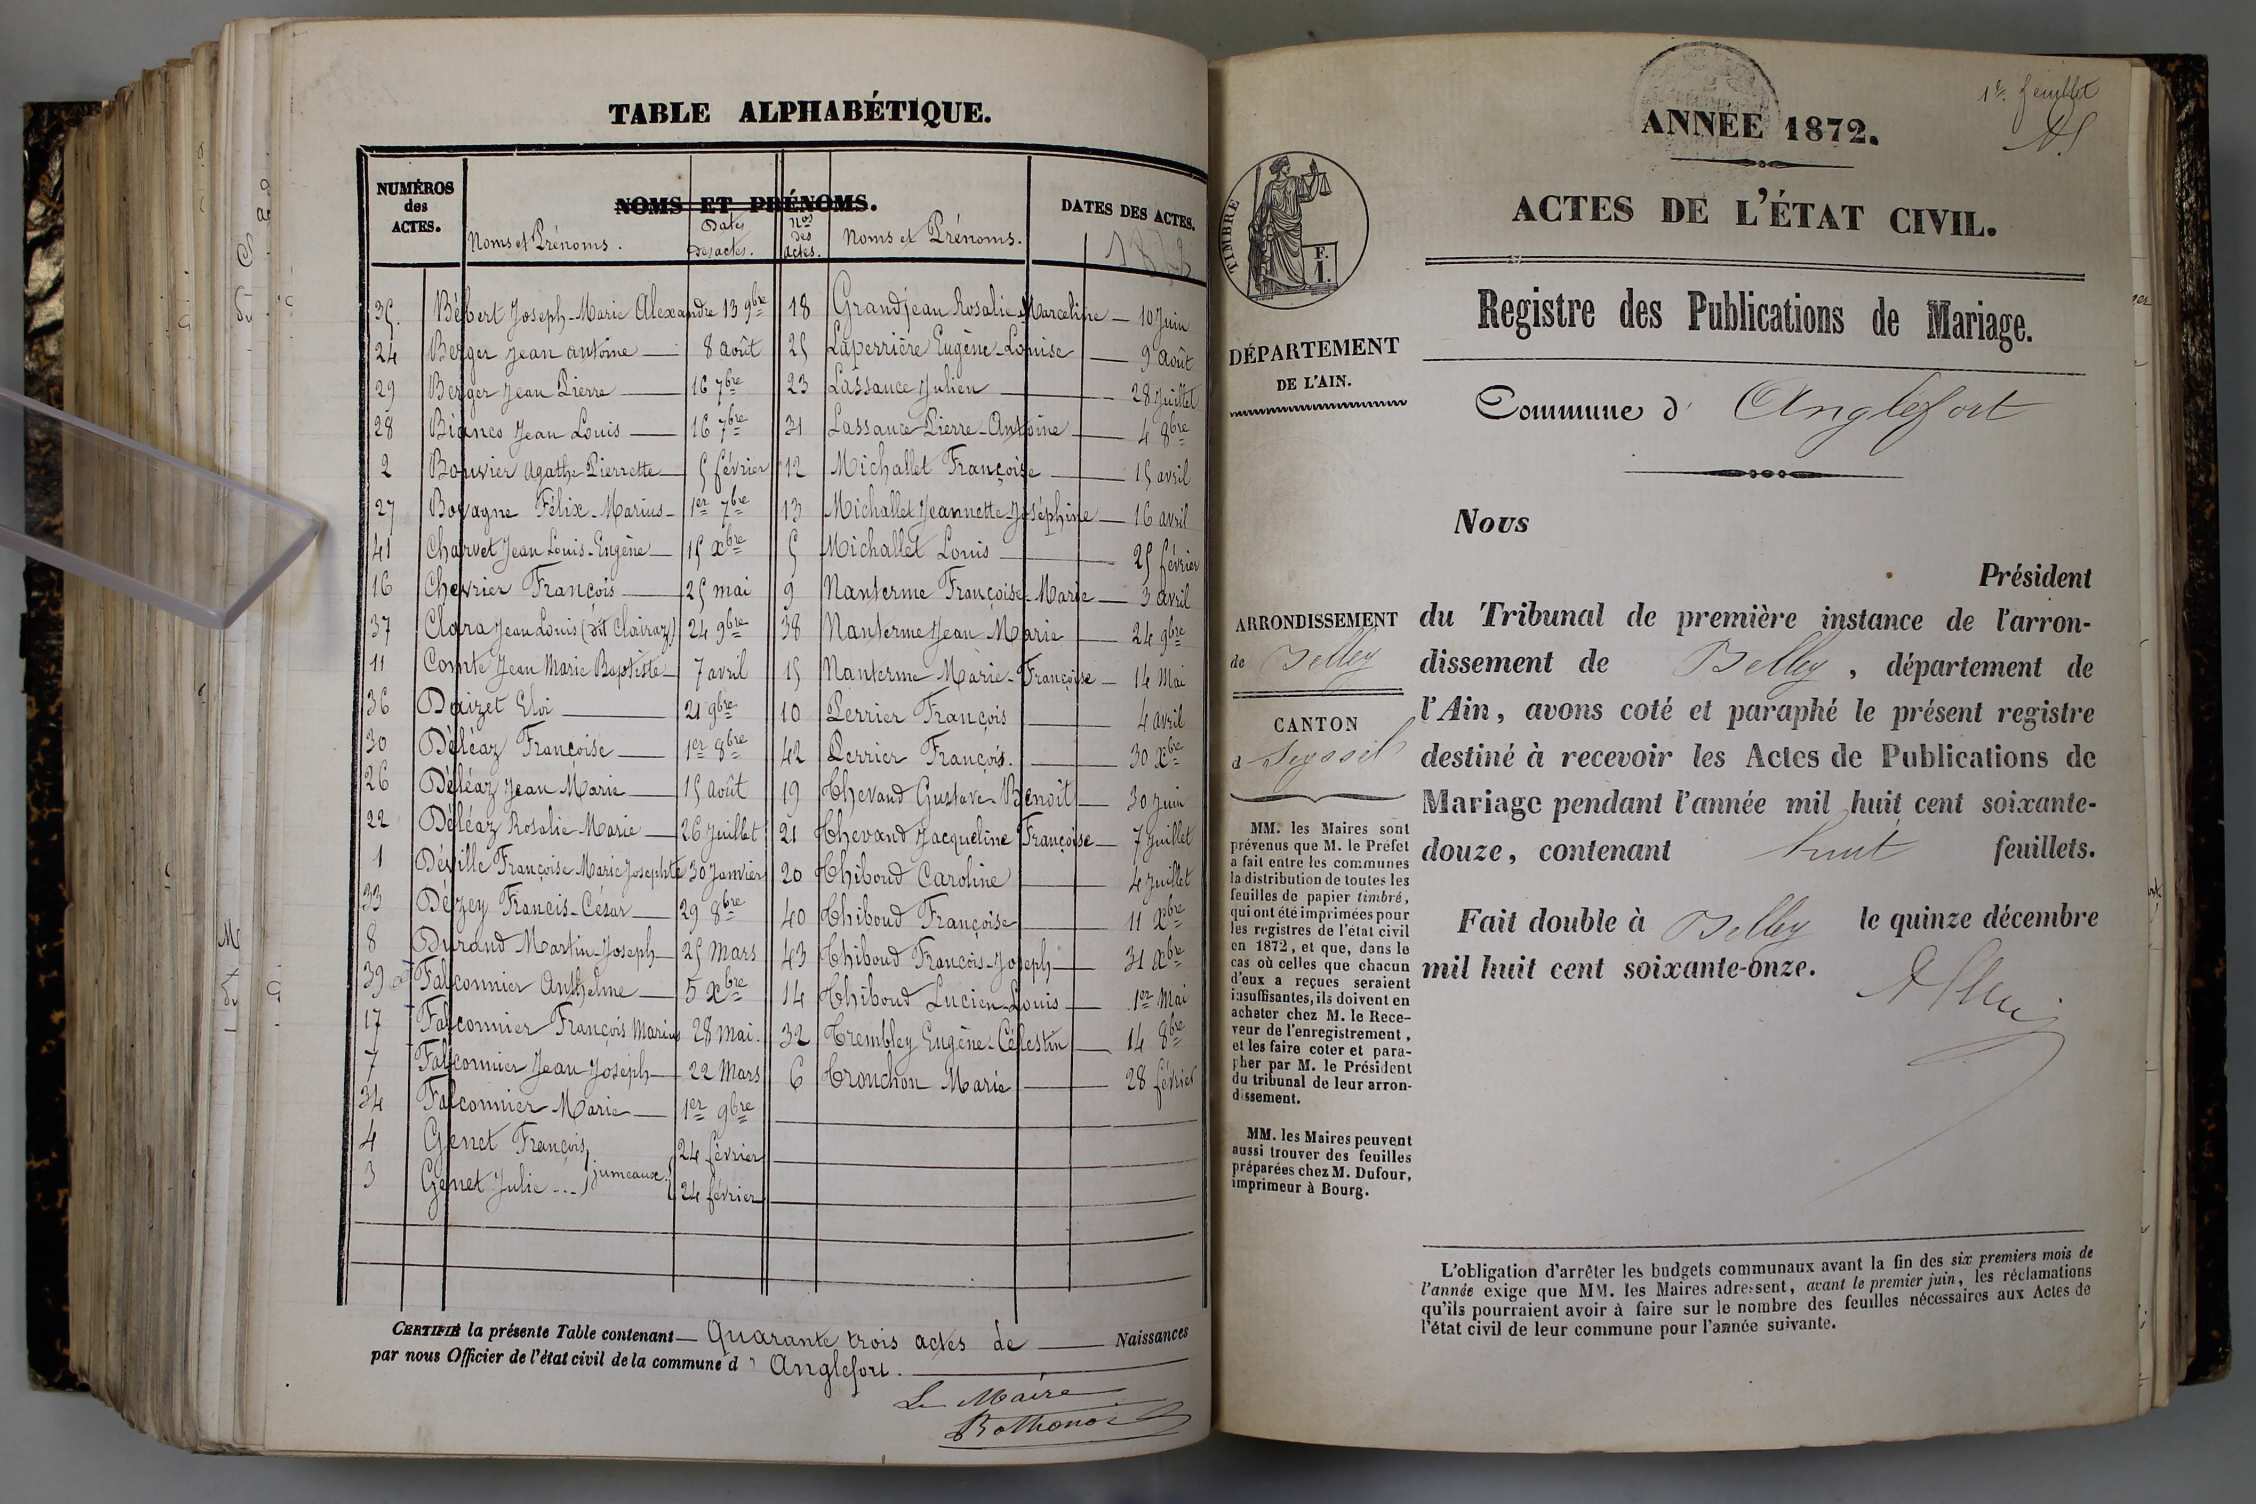 TABLE ALPHABÉTIQUE.
NUMÉROS des ACTES.
NOMS ET PRÉNOMS.
DATES DES ACTES.
Noms et Prénoms.
Dates des actes.
Nos des actes.
Noms et Prénoms.
35. Bébert Joseph-Marie Alexandre 13 9bre
24 Berger Jean Antoine 8 août
29 Berger Jean Pierre 16 7bre
28 Bianco Jean Louis 16 7bre
2 Bouvier Agathe-Pierrette 5 février
27 Bovagne Félix-Marius 1er 7bre
41 Charvet Jean Louis-Eugène 15 xbre
16 Chevrier François 25 mai
37 Clara Jean Louis (dit Clairaz) 24 9bre
11 Comte Jean Marie Baptiste 7 avril
36 Daizet Eloi 21 9bre
30 Déléaz Françoise 1er 8bre
26 Déléaz Jean Marie 15 août
22 Déléaz Rosalie Marie 26 Juillet
1 Déville Françoise Marie Josephte 30 Janvier
33 Dézey Francis-César 29 8bre
8 Durand Martin-Joseph 25 Mars
39 Falconnier Anthelme 5 xbre
17 Falconnier François Marius 28 mai.
7 Falconnier Jean Joseph 22 Mars
34 Falconnier Marie 1er 9bre
4 Genet François 24 février
jumeaux.
3 Genet Julie 24 février
18 Grandjean Rosalie-Marceline 10 Juin
25 Laperrière Eugène-Louise 9 août
23 Lassauce Julien 28 Juillet
31 Lassauce Pierre-Antoine 4 8bre
12 Michallet Françoise 15 avril
13 Michallet Jeannette-Joséphine 16 avril
5 Michallet Louis 25 février
9 Nanterme Françoise-Marie 3 avril
38 Nanterme Jean Marie 24 9bre
15 Nanterme Marie-Françoise 14 Mai
10 Perrier François 4 avril
42 Perrier François. 30 xbre
19 Thevand Gustave-Benoît 30 Juin
21 Thevand Jacqueline Françoise 7 Juillet
20 Thiboud Caroline 4 Juillet
40 Thiboud Françoise 11 xbre
43 Thiboud François-Joseph 31 xbre
14 Thiboud Lucien-Louis 1er Mai
32 Trembley Eugène-Célestin 14 8bre
6 Trouchon Marie 28 février
CERTIFIÉ la présente Table contenant Quarante trois actes de Naissances
par nous Officier de l'état civil de la commune d' Anglefort.
Le Maire
1er feuillet
ANNÉE 1872.
ACTES DE L'ÉTAT CIVIL.
Registre des Publications de Mariage.
Commune d' Anglefort
TIMBRE
F.
1.
DÉPARTEMENT
DE L'AIN.
ARRONDISSEMENT
de Belley
CANTON
d Seyssel
MM. les Maires sont
prévenus que M. le Préfet
a fait entre les communes
la distribution de toutes les
feuilles de papier timbré,
qui ont été imprimées pour
les registres de l'état civil
en 1872, et que, dans le
cas où celles que chacun
d'eux a reçues seraient
insuffisantes, ils doivent en
acheter chez M. le Rece-
veur de l'enregistrement,
et les faire coter et para-
pher par M. le Président
du tribunal de leur arron-
dissement.
MM. les Maires peuvent
aussi trouver des feuilles
préparées chez M. Dufour,
imprimeur à Bourg.
Nous
Président
du Tribunal de première instance de l'arron-
dissement de Belley, département de
l'Ain, avons coté et paraphé le présent registre
destiné à recevoir les Actes de Publications de
Mariage pendant l'année mil huit cent soixante-
douze, contenant huit feuillets.
Fait double à Belley le quinze décembre
mil huit cent soixante-onze.
L'obligation d'arrêter les budgets communaux avant la fin des six premiers mois de
l'année exige que MM. les Maires adressent, avant le premier juin, les réclamations
qu'ils pourraient avoir à faire sur le nombre des feuilles nécessaires aux Actes de
l'état civil de leur commune pour l'année suivante.